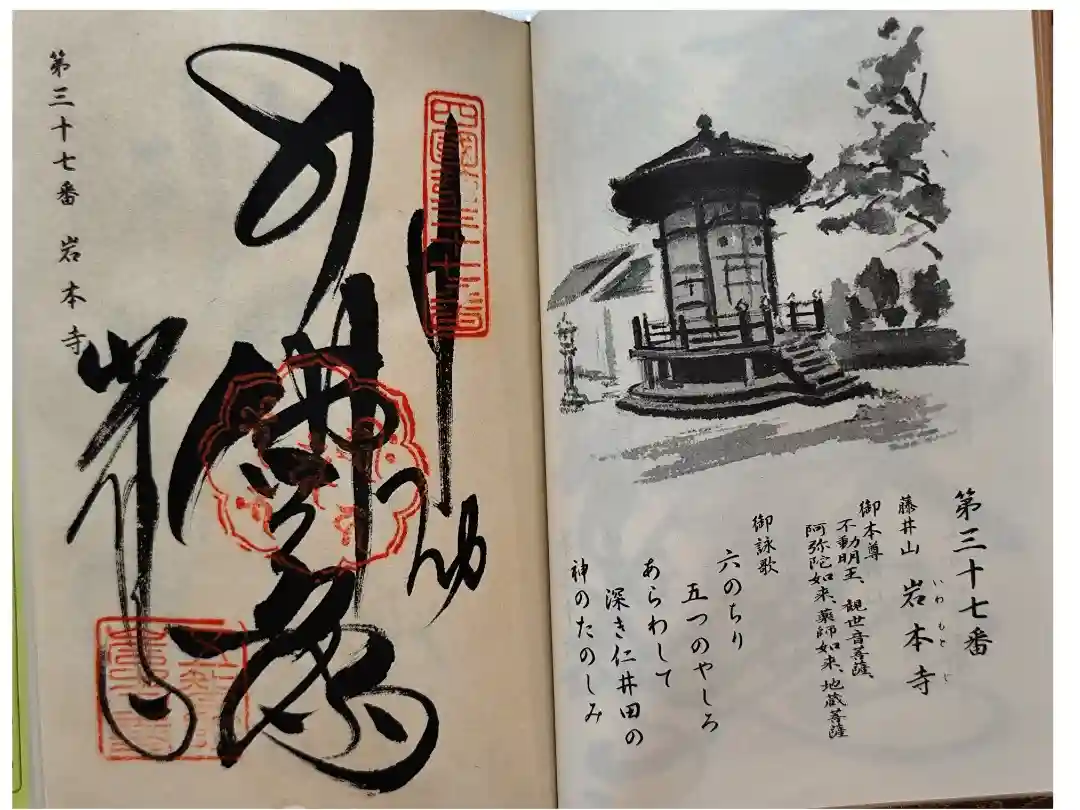 第三十七番
藤井山 岩本寺
いわもとじ
御本尊
不動明王、観世音菩薩、
阿弥陀如来、薬師如来、地蔵菩薩
御詠歌
六のちり
五つのやしろ
あらわして
深き仁井田の
神のたのしみ
四國第三十七番
第三十七番 岩本寺